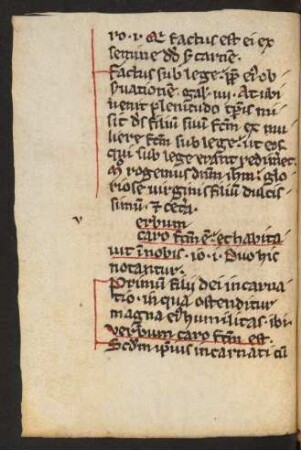 ro· i· Qi factus est ei ex
semine dd s carnē·
factus sub lege· ip̄ eī ob
suatione· gal· iiii· At ubi
uenit plenitudo tp̄is mi
sit ds filiū suū fcm̄ ex mu
liere fcm̄ sub lege· ut eos
qui sub lege erant redim̄et·
rogemus dnm̄ ihm̄ glo
riose uirginis filiū dulcis
simū· ⁊ cetā
v erbum
caro fcm̄ ē· et habita
uit ī nobis· io· i· Duo hic
notantur·
Primum filij dei incarna
tio· in qua ostenditur
magna eī humilitas· ibi·
uerbum caro fcm̄ est·
Scdm̄ ipsius incarnati cū